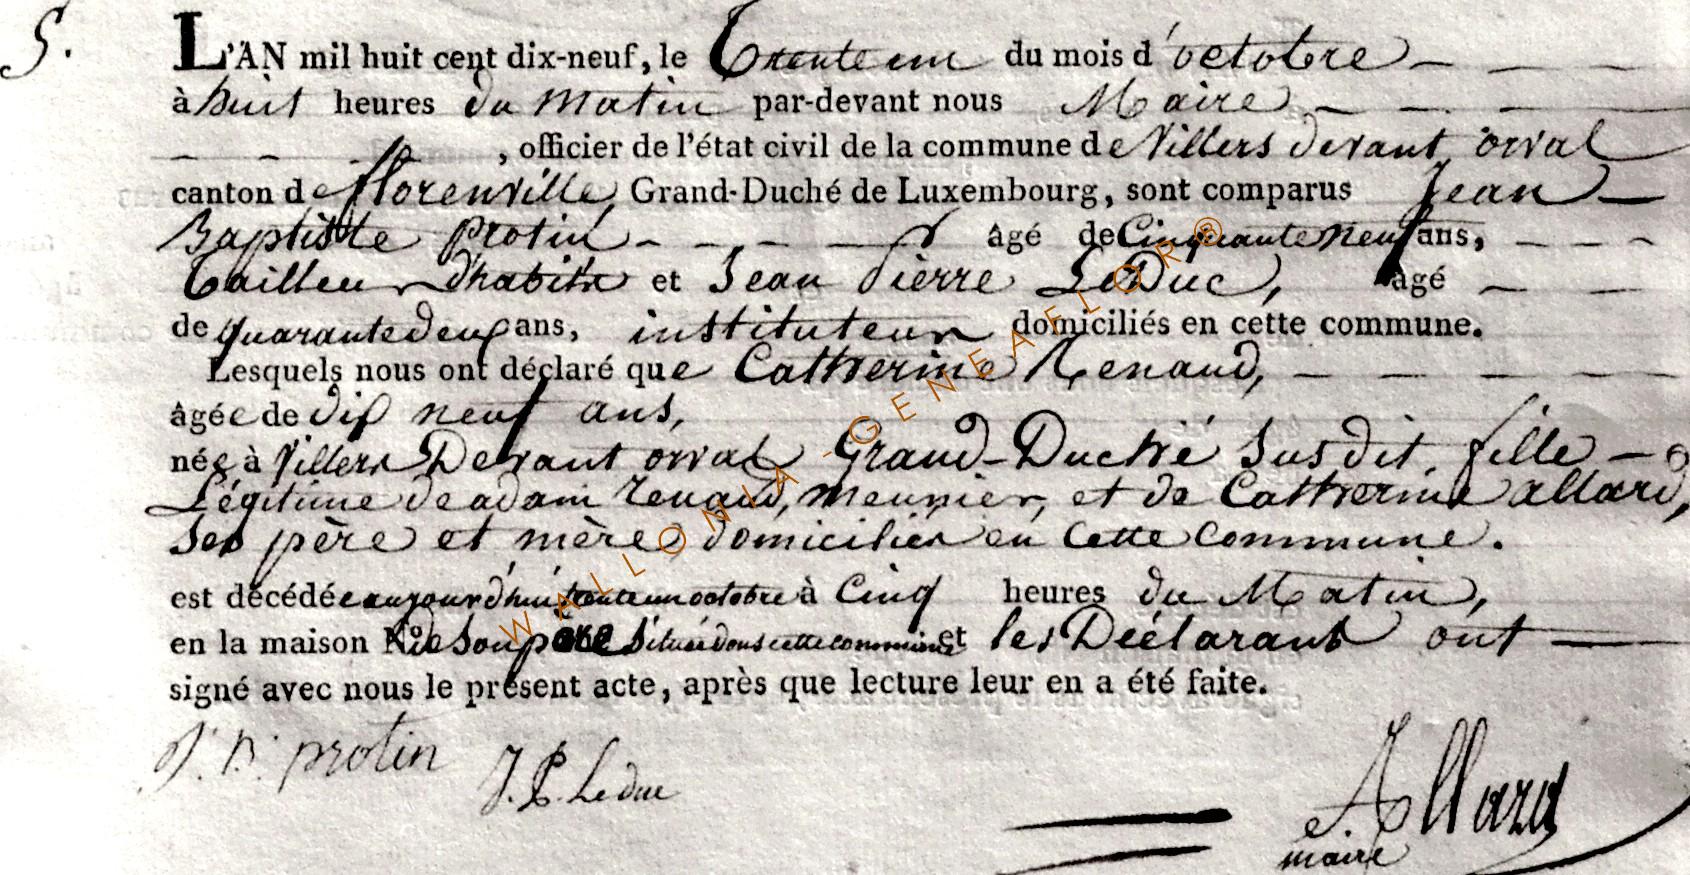 5.
L'AN mil huit cent dix-neuf, le Trente un du mois d'octobre
à huit heures du Matin par-devant nous Maire
, officier de l'état civil de la commune de Villers devant orval
canton de florenville, Grand-Duché de Luxembourg, sont comparus Jean
Baptiste Protin âgé de Cinquante neuf ans,
Tailleur d'habits et Jean Pierre LeDuc, âgé
de quarante deux ans, instituteur domiciliés en cette commune.
Lesquels nous ont déclaré que Catherine Renaud,
âgée de dix neuf ans,
née à Villers Devant orval Grand-Duché susdit, fille
Légitime de adam renaud, meunier, et de Catherine allard,
ses père et mère domiciliés en cette commune.
est décédée aujourd'hui trente un octobre à Cinq heures du Matin,
en la maison No de son père située dans cette commune et les Déclarants ont
signé avec nous le présent acte, après que lecture leur en a été faite.
J. B. protin J. P. Leduc Allard
maire
WALLONIA - GENEAFLOR®